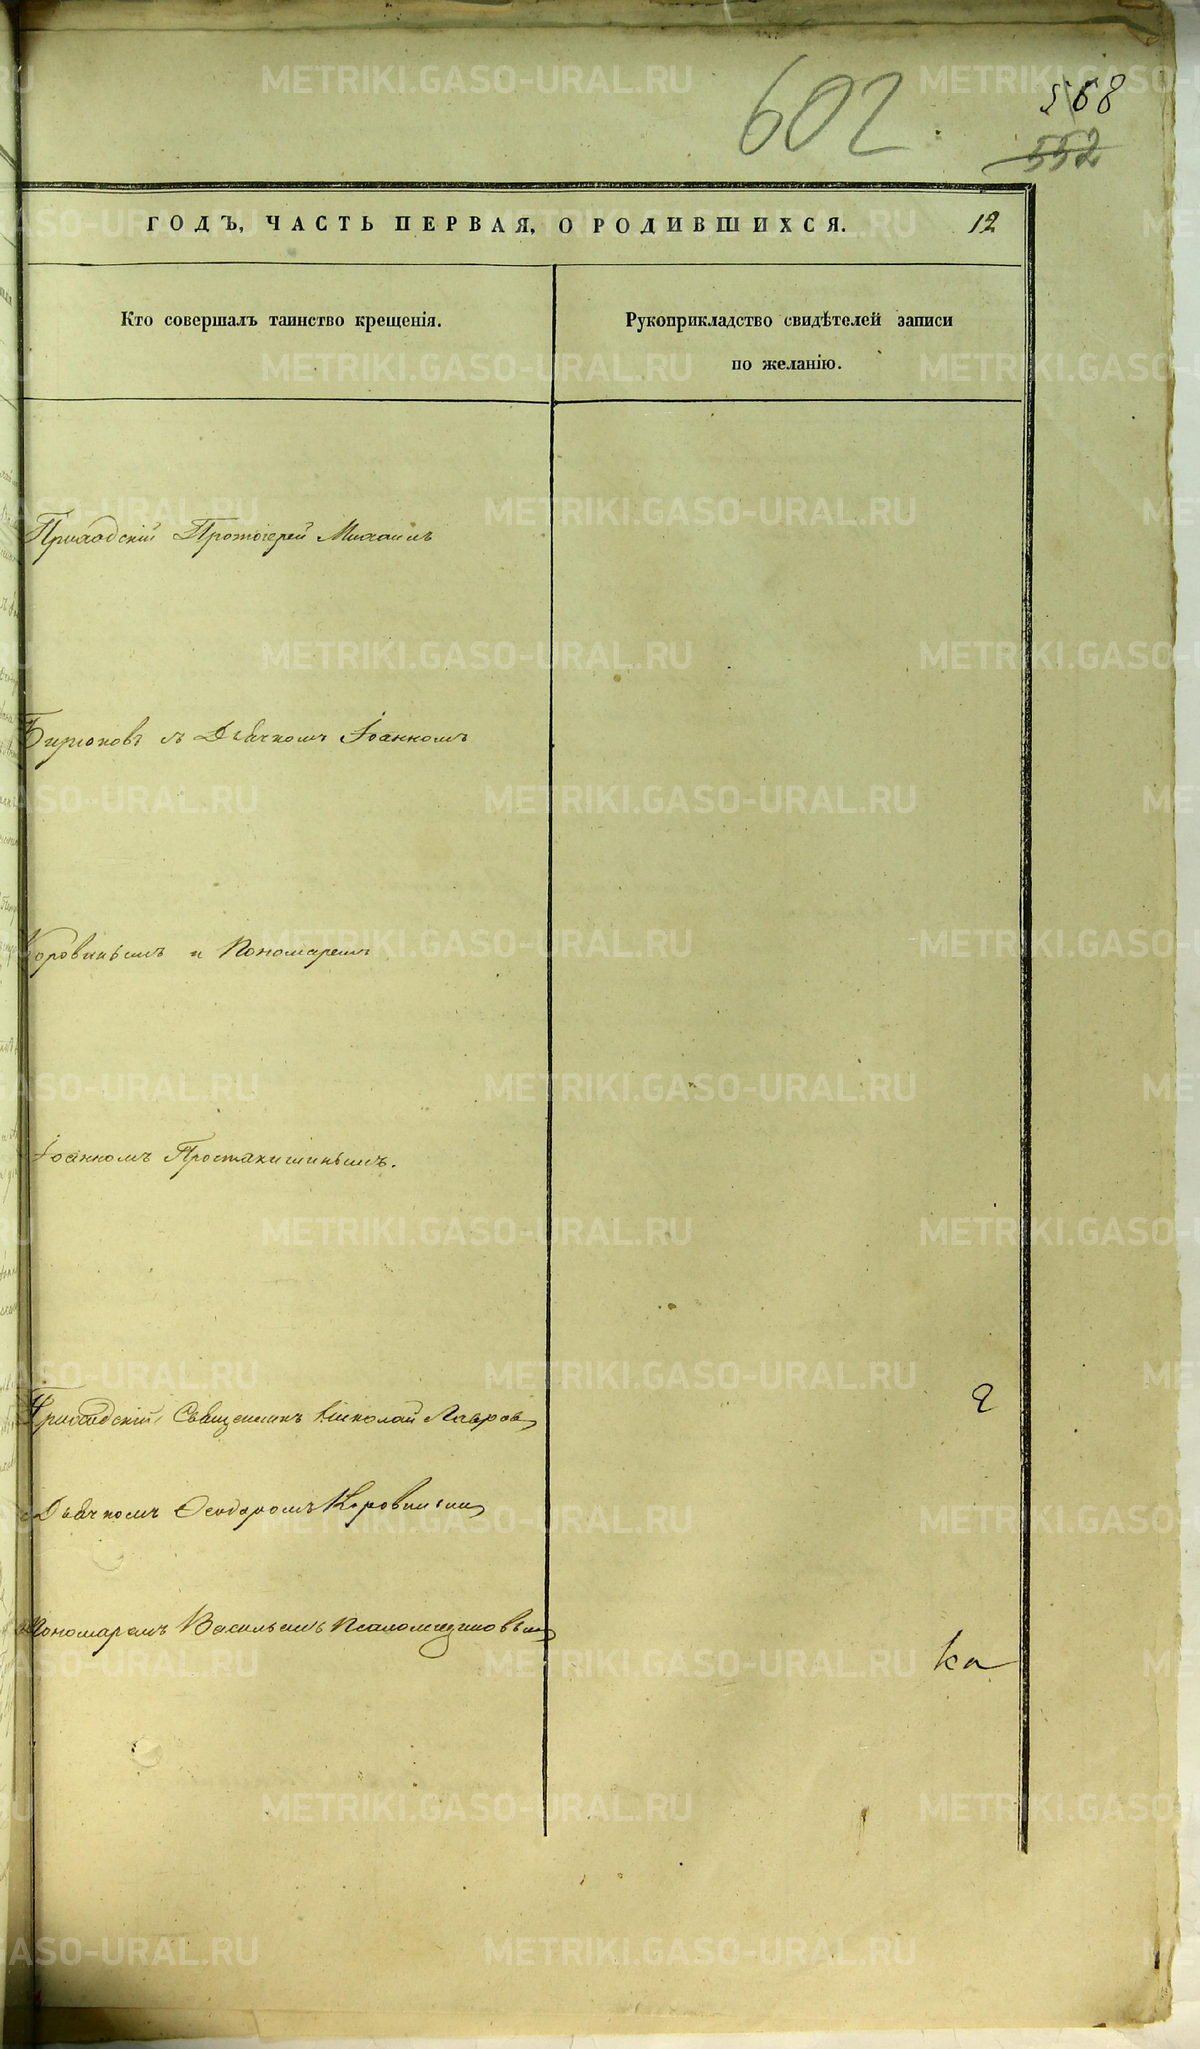 602
568
552
ГОДЪ, ЧАСТЬ ПЕРВАЯ, О РОДИВШИХСЯ. 12
Кто совершалъ таинство крещенія.
Рукоприкладство свидѣтелей записи
по желанію.
Приходскій Протоіерей Михаилъ
Бирюковъ съ Дьячкомъ Іоанномъ
Коровинымъ и Пономаремъ
Іоанномъ Простакишинымъ.
Приходскій Священникъ Николай Лавровъ
2
Дьячкомъ Ѳеодоромъ Коровинымъ
Пономаремъ Васильемъ
ка
METRIKI.GASO-URAL.RU